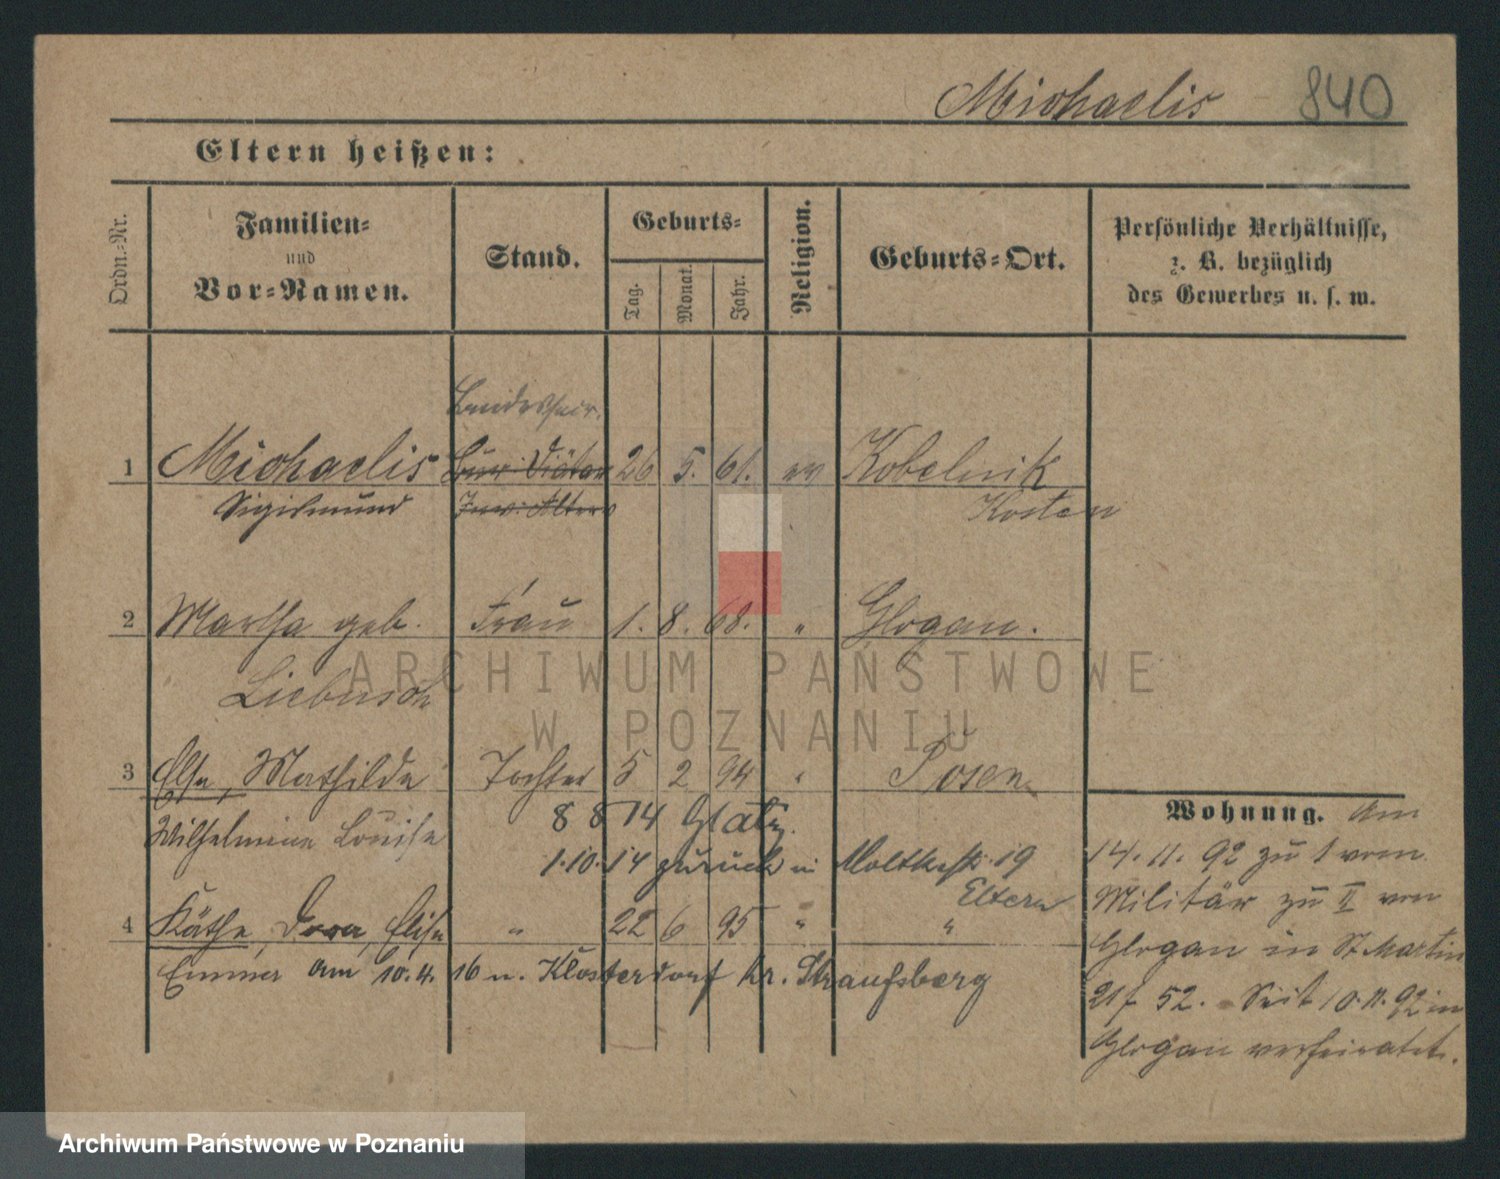 Michaelis 840
Eltern heißen:
Ordn.-Nr.
Familien-
und
Vor-Namen.
Stand.
Geburts-
Tag.
Monat.
Jahr.
Religion.
Geburts-Ort.
Persönliche Verhältnisse,
z. B. bezüglich
des Gewerbes u. s. w.
1 Michaelis Bur. Diätar 26 5. 61. ev Kobelnik
Sigismund Kosten
2 Martha geb. Frau 1. 8. 68. " Glogau.
Liebusch
3 Else, Mathilde Tochter 5 2 94 " Posen
Wilhelmine Louise 8 8 14 Glatz.
1.10.14 zurück in Moltkestr. 19
Eltern
4 Käthe, Dora, Elise " 22 6 95 " "
Emma am 10.4.16 n. Klosterdorf Kr. Straußberg
Wohnung. Am
14. 11. 92 zu 1 vom
Militär zu II von
Glogau in St Martin
52. Seit 10.11.92 in
Glogau verheiratet.
ARCHIWUM PAŃSTWOWE
W POZNANIU
Archiwum Państwowe w Poznaniu